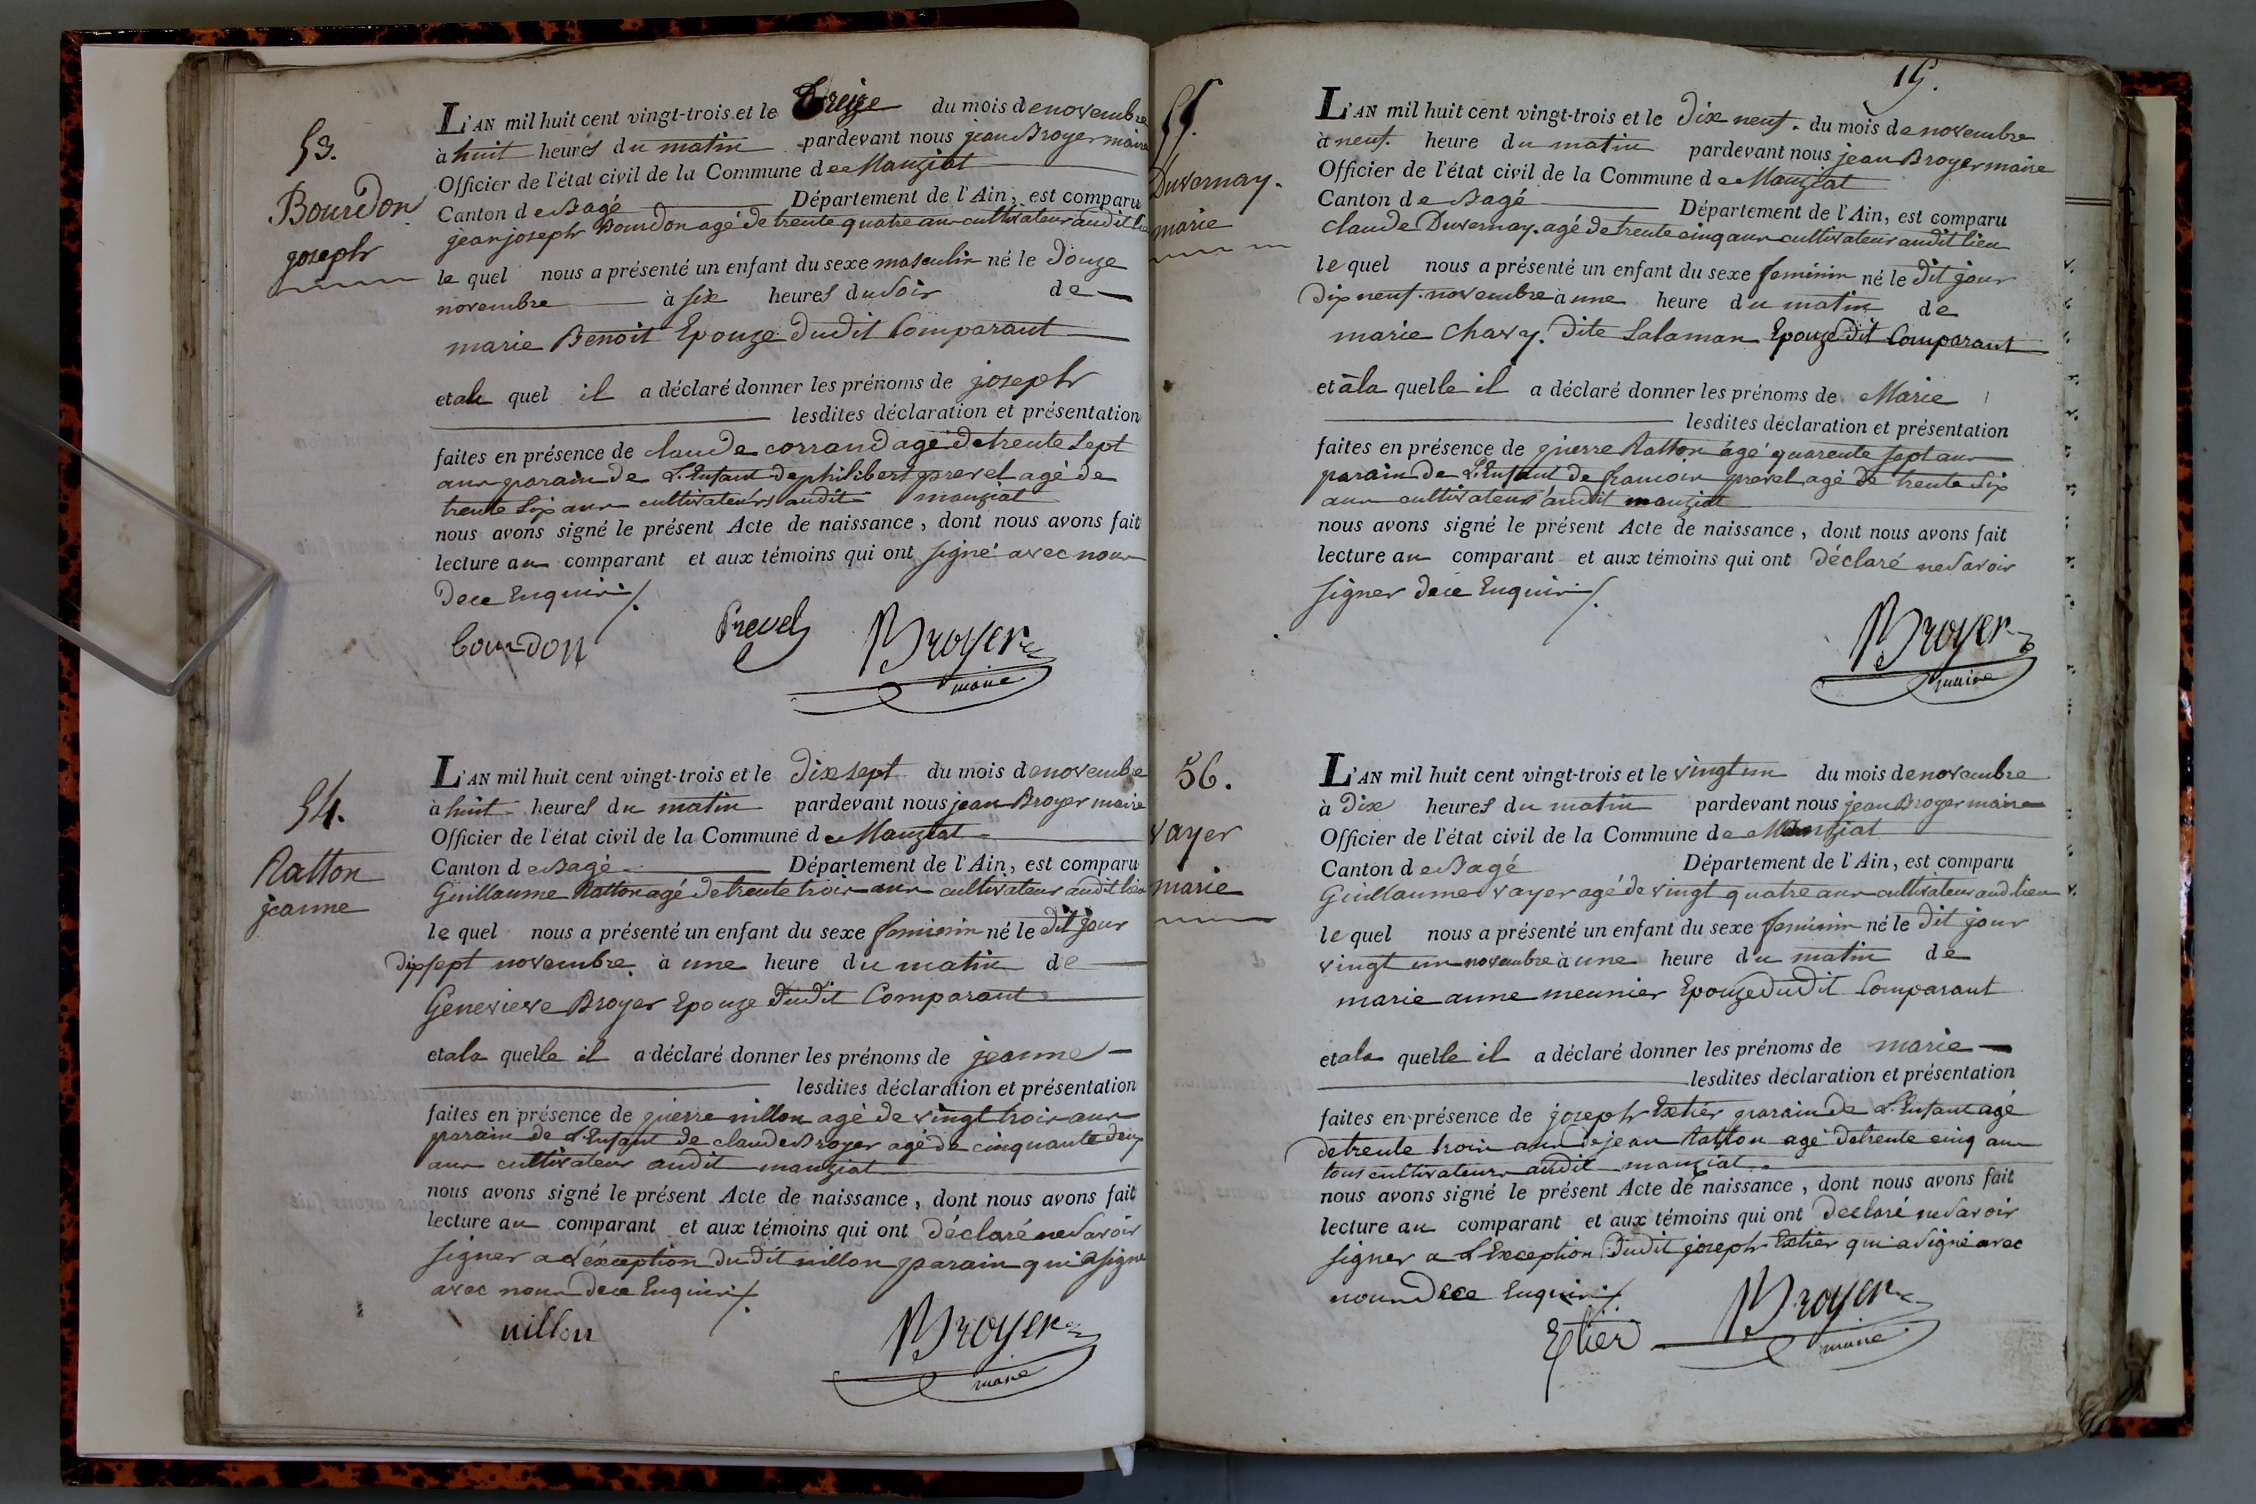 53.
Bourdon
joseph
L'AN mil huit cent vingt-trois et le Treize du mois de novembre
à huit heures du matin pardevant nous jean Broyer maire
Officier de l'état civil de la Commune de Manziat
Canton de Bagé Département de l'Ain, est comparu
jean joseph Bourdon agé de trente quatre ans cultivateur audit lieu
le quel nous a présenté un enfant du sexe masculin né le Douze
novembre à six heures du soir de
marie Benoit Epouze dudit Comparant
et au quel il a déclaré donner les prénoms de joseph
lesdites déclaration et présentation
faites en présence de claude corrand agé de trente sept
ans parain de L'Enfant de philibert prevel agé de
trente six ans cultivateurs audit manziat
nous avons signé le présent Acte de naissance, dont nous avons fait
lecture au comparant et aux témoins qui ont signé avec nous
de ce Enquis ./.
bourdon Prevel Broyer
maire
54.
Ratton
jeanne
L'AN mil huit cent vingt-trois et le dix sept du mois de novembre
à huit heures du matin pardevant nous jean Broyer maire
Officier de l'état civil de la Commune de Manziat
Canton de Bagé Département de l'Ain, est comparu
Guillaume Ratton agé de trente trois ans cultivateur audit lieu
le quel nous a présenté un enfant du sexe feminin né le dit jour
dix sept novembre à une heure du matin de
Genevieve Broyer Epouze dudit Comparant
et a la quelle il a déclaré donner les prénoms de jeanne
lesdites déclaration et présentation
faites en présence de pierre nillon agé de vingt trois ans
parain de L'Enfant de claude Broyer agé de cinquante deux
ans cultivateur audit manziat
nous avons signé le présent Acte de naissance, dont nous avons fait
lecture au comparant et aux témoins qui ont Déclaré ne Savoir
signer a L'exception dudit nillon parain qui a signé
avec nous de ce Enquis ./.
nillon Broyer
maire
15.
55.
Duvernay.
marie
L'AN mil huit cent vingt-trois et le dix neuf. du mois de novembre
à neuf. heure du matin pardevant nous jean Broyer maire
Officier de l'état civil de la Commune de Manziat
Canton de Bagé Département de l'Ain, est comparu
claude Duvernay. agé de trente cinq ans cultivateur audit lieu
le quel nous a présenté un enfant du sexe feminin né le dit jour
dix neuf. novembre à une heure du matin de
marie Chavy. dite Salaman Epouze dit Comparant
et à la quelle il a déclaré donner les prénoms de Marie
lesdites déclaration et présentation
faites en présence de pierre Ratton agé quarente sept ans
parain de L'Enfant de francois prevel agé de trente six
ans cultivateurs audit manziat
nous avons signé le présent Acte de naissance, dont nous avons fait
lecture au comparant et aux témoins qui ont déclaré ne Savoir
signer de ce Enquis ./.
Broyer
maire
56.
vayer
marie
L'AN mil huit cent vingt-trois et le vingt un du mois de novembre
à Dix heures du matin pardevant nous jean Broyer maire
Officier de l'état civil de la Commune de Manziat
Canton de Bagé Département de l'Ain, est comparu
Guillaume vayer agé de vingt quatre ans cultivateur aud lieu
le quel nous a présenté un enfant du sexe feminin né le dit jour
vingt un novembre à une heure du matin de
marie anne meunier Epouze dudit Comparant
et a la quelle il a déclaré donner les prénoms de marie
lesdites déclaration et présentation
faites en présence de joseph Extier parain de L'Enfant agé
de trente trois ans de jean Ratton agé de trente cinq ans
tous cultivateurs audit manziat.
nous avons signé le présent Acte de naissance, dont nous avons fait
lecture au comparant et aux témoins qui ont Declaré ne Savoir
signer a L'Exception dudit joseph Extier qui a signé avec
nous de ce Enquis ./.
Extier Broyer
maire